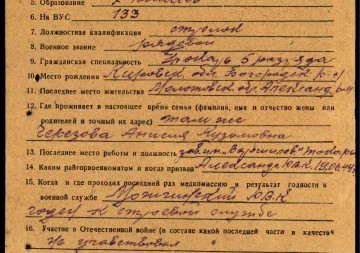 5. Образование 7 классов
6. № ВУС 133
7. Должностная квалификация стрелок
8. Военное звание рядовой
9. Гражданская специальность токарь 5 разряда
10. Место рождения Кировск. обл. Богородск. р-н
11. Последнее местожительство Молотовск. обл. Александр. р-н
12. Где проживает в настоящее время семья (фамилия, имя и отчество жены или
родителей и точный их адрес) там же
Березова Анисия Кузьмовна
13. Последнее место работы и должность токарь
14. Каким райгорвоенкоматом и когда призван Александр. РВК 19.06.44
15. Когда и где проходил последний раз медкомиссию и результат годности к
военной службе РВК
годен к строевой службе
16. Участие в Отечественной войне (в составе какой последней части и в качестве
не участвовал